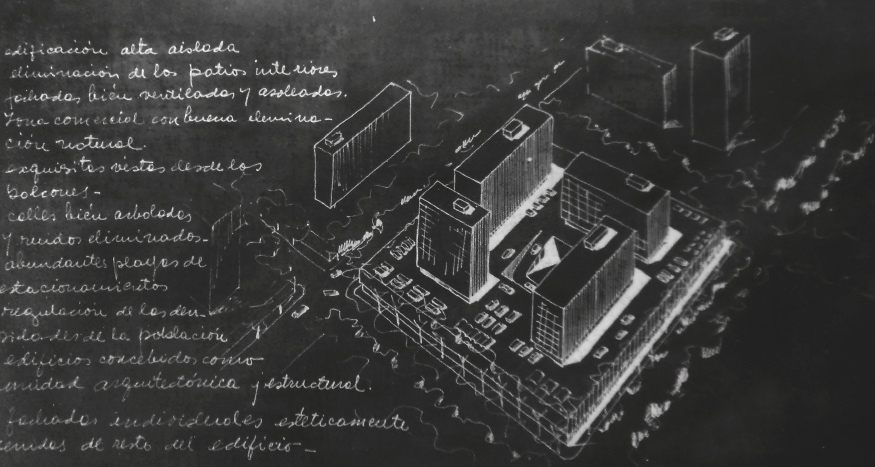 edificación alta aislada
eliminación de los patios interiores
fachadas bién ventiladas y asoleadas.
Zona comercial con buena ilumina-
ción natural.
exquisitas vistas desde los
balcones-
calles bién arboladas
y ruidos eliminados-
abundantes playas de
estacionamientos
regulación de las den-
sidades de la población
edificios concebidos como
unidad arquitectónica y estructural.
fachadas individuales estéticamente
de resto del edificio-